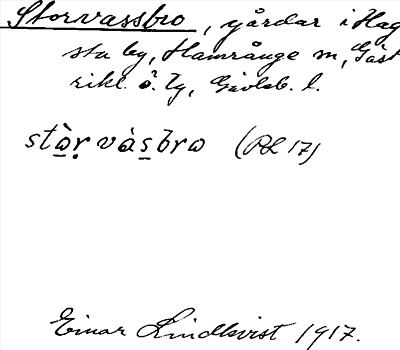 Storvassbro, gårdar i Hag
sta by, Hamrånge sn, Gäst
rikl. ö. tg, Gävleb. l.
stò̠ṛ vàs̠bro (RL 17)
Einar Lindkvist 1917.